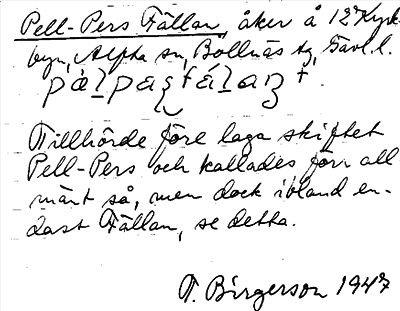 Pell-Pers Fällan, åker å 12 Kyrk-
byn, Alfta sn, Bollnäs tg, Gävl. l.
Tillhörde före laga skiftet
Pell-Pers och kallades förr all-
mänt så, men dock ibland en-
dast Fällan, se detta.
T. Birgerson 1947